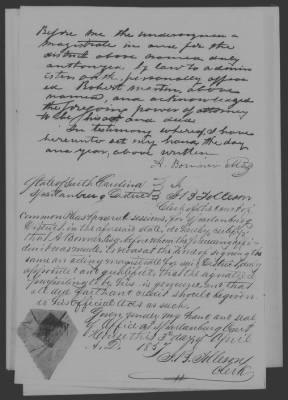 Before me the undersigned a
magistrate in and for the
district above named duly
authorized by law to admin
ister oaths, personally appea
red Robert Martin above
named, and acknowledged
the foregoing power of attorney
to be his act and deed
In testimony whereof I have
hereunto set my hand the day
and year above written
A. Bonner
State of South Carolina
Spartanburg District I
Clerk of the Court of
Common Pleas & general sessions, for Spartanburg
District, in the aforesaid state, do hereby certify
that A. Bonner Esq. before whom the
was made, is was at the time of signing the
same an acting magistrate for said District duly
appointed and qualified, that the signature
purporting to be his is genuine and that
full faith and credit should be given
to his official acts as such.
Given under my hand and seal
of office at Spartanburg Court
House this 3rd day of April
A.D. 1857
Clerk